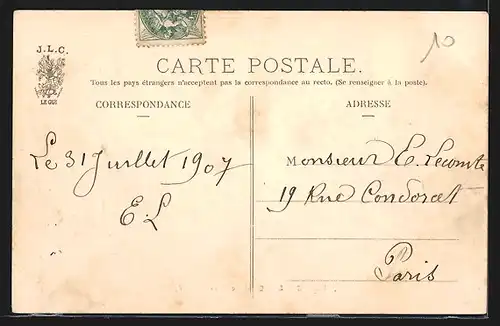 10
J.L.C.
LE GUI
CARTE POSTALE.
Tous les pays étrangers n'acceptent pas la correspondance au recto. (Se renseigner à la poste).
CORRESPONDANCE
ADRESSE
Le 31 Juillet 1907
E.L
Monsieur E. Lecomte
19 Rue Condorcet
Paris